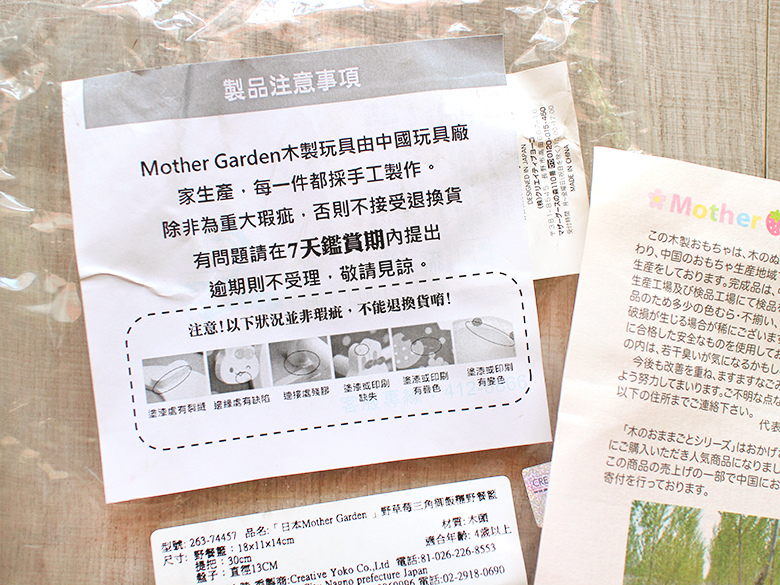 製品注意事項
Mother Garden木製玩具由中國玩具廠
家生產，每一件都採手工製作。
除非為重大瑕疵，否則不接受退換貨
有問題請在7天鑑賞期內提出
逾期則不受理，敬請見諒。
注意！以下狀況並非瑕疵，不能退換貨唷！
塗漆處有裂縫
連接處有缺陷
連接處殘膠
塗漆或印刷
缺失
塗漆或印刷
有疊色
塗漆或印刷
有變色
DESIGNED IN JAPAN
(株)クリエイティブヨーコ
マザーガーデンの森110番 0120-015-450
MADE IN CHINA
Mother
この木製おもちゃは、木のぬ
わり、中国のおもちゃ生産地域
生産をしております。完成品は、
生産工場及び検品工場にて検品を
品のため多少の色むら・不揃い、
破損が生じる場合が稀にございます
に合格した安全なものを使用して
の内は、若干臭いが気になるかもし
今後も改善を重ね、ますますなご
よう努力してまいります。ご不明な点な
以下の住所までご連絡下さい。
代表
「木のおままごとシリーズ」はおかげ
にご購入いただき人気商品になりまし
この商品の売上げの一部で中国にお
寄付を行っております。
型號: 263-74457 品名:「日本Mother Garden 」野草莓三角御飯糰野餐籃
尺寸: 野餐籃：18x11x14cm 材質:木頭
提把：30cm 適合年齡: 4歲以上
盤子：直徑13CM
Creative Yoko Co.,Ltd 電話:81-026-226-8553
Nagno prefecture Japan
電話:02-2918-0690